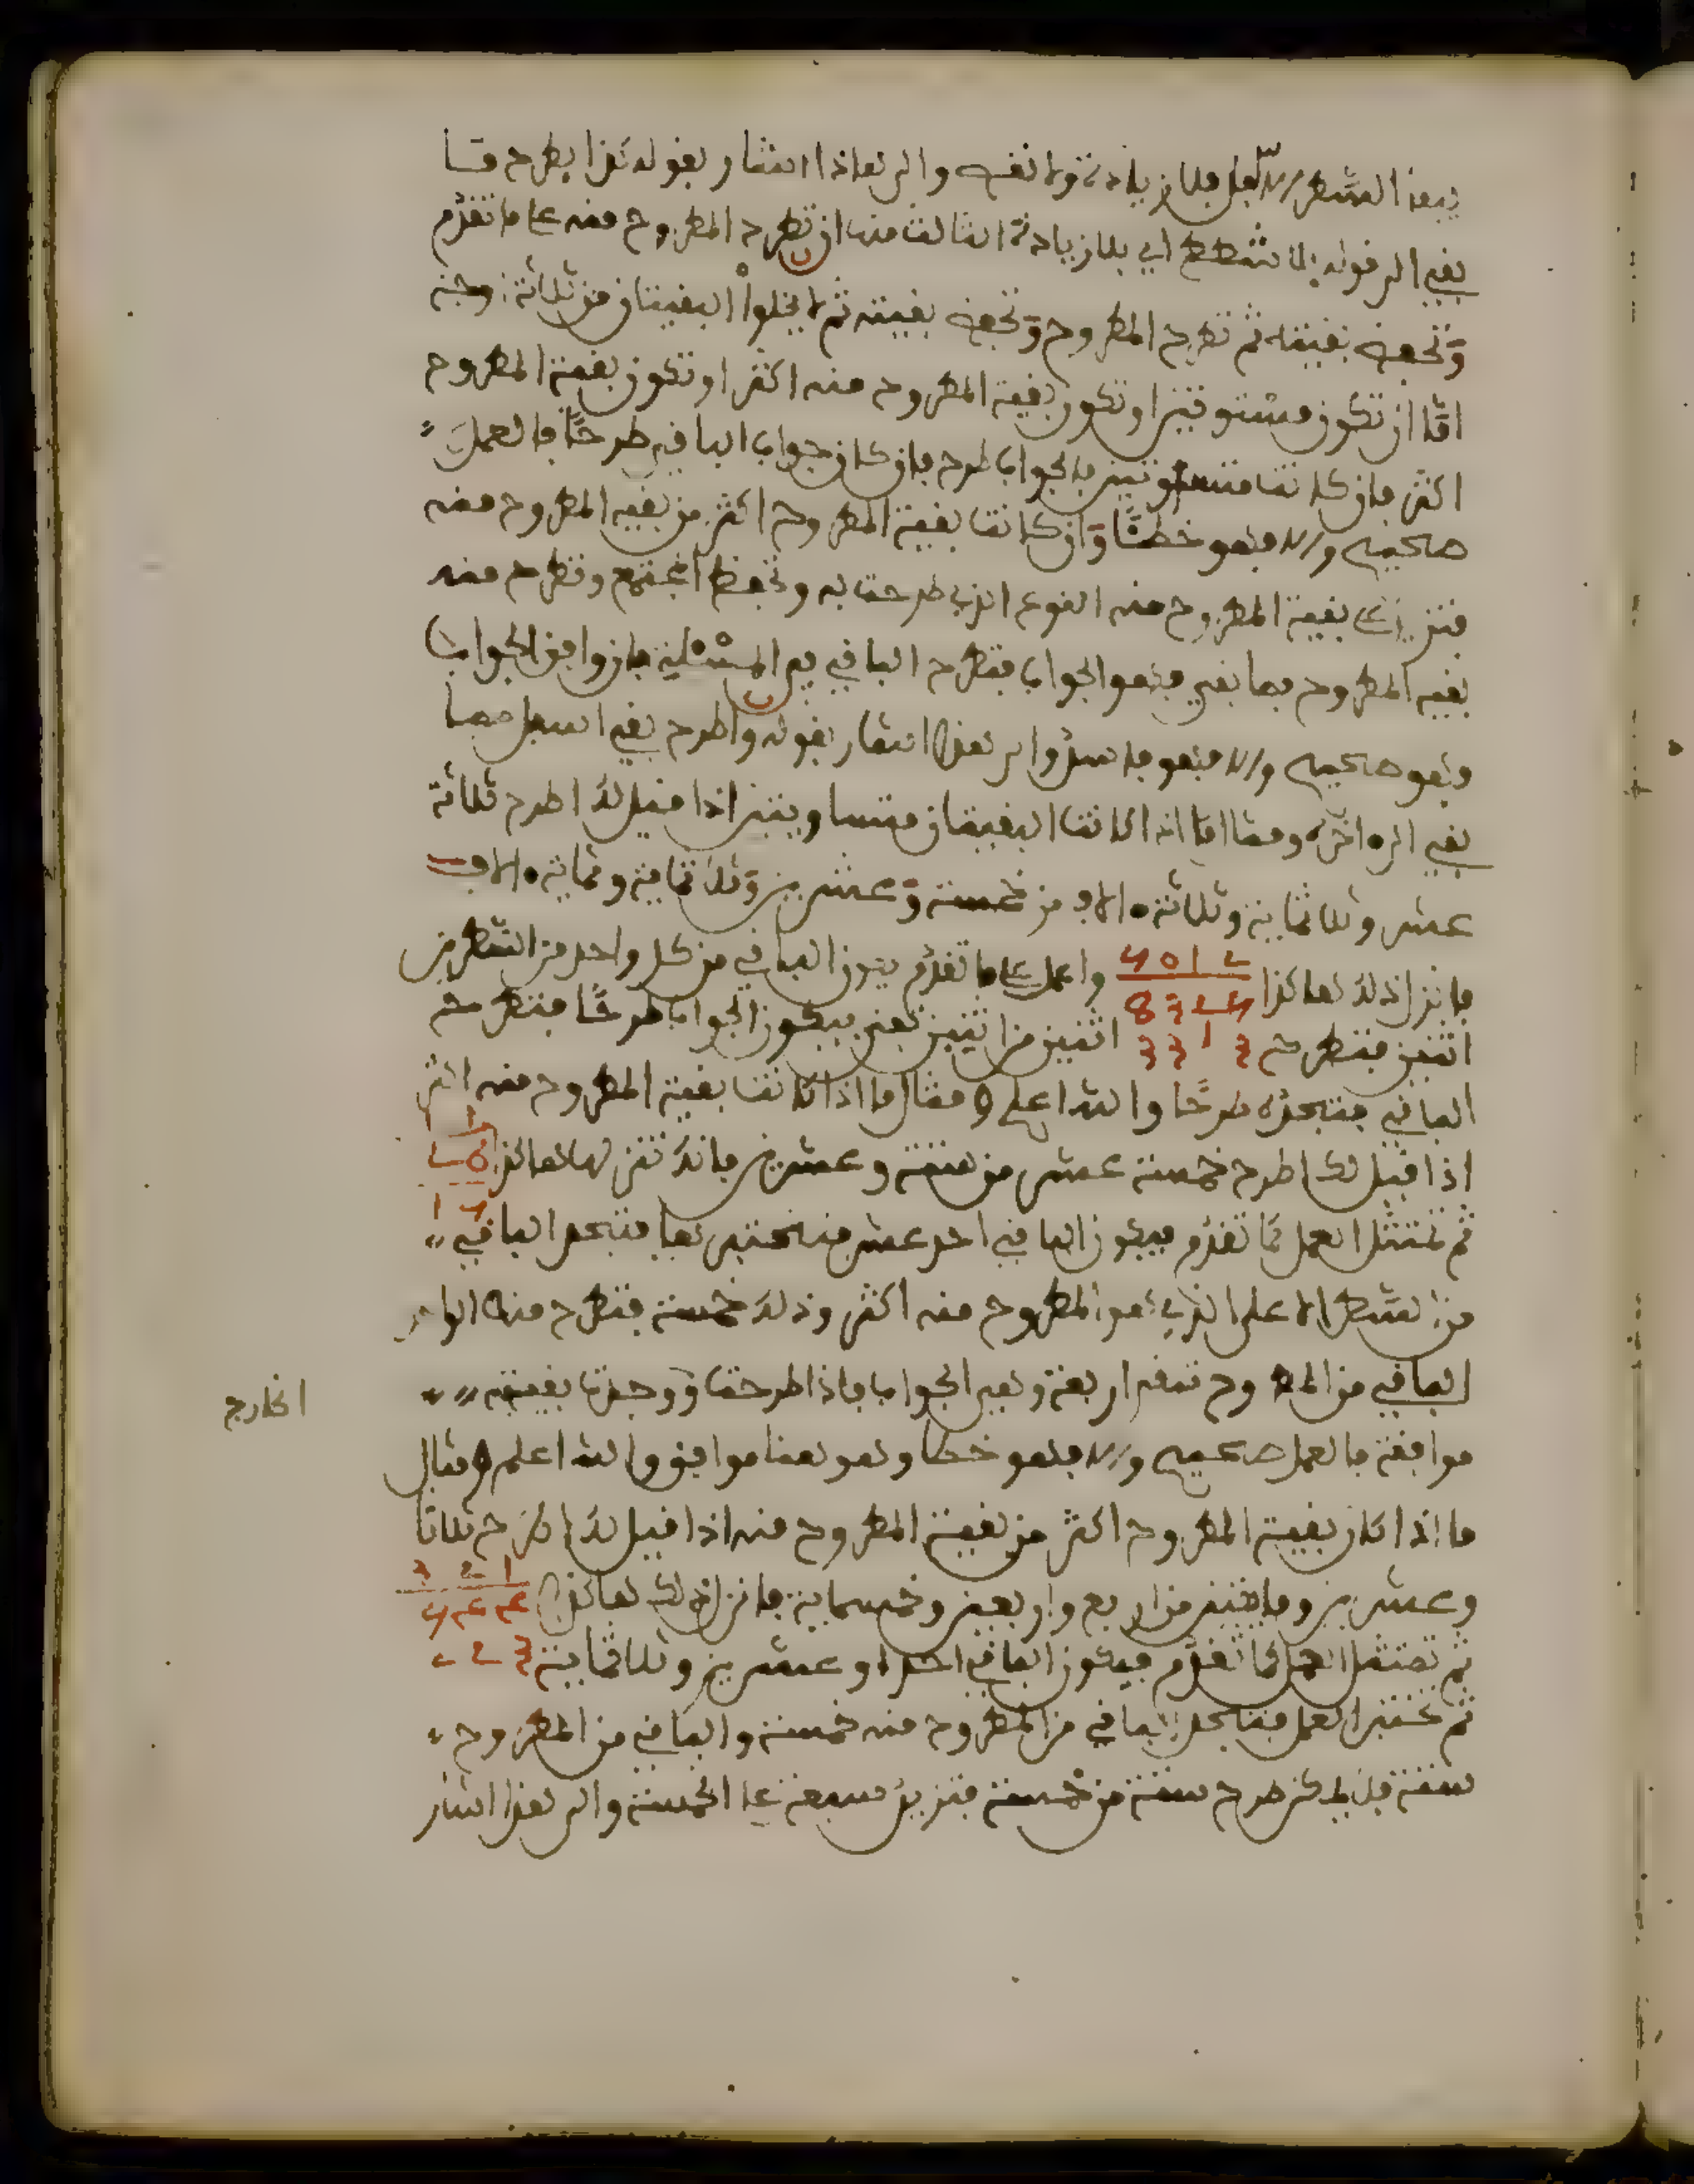 بقي الى قوله بلا شطط اي بلا زيادة الثالث منها ان تطرح المطروح منه على ما تقدم
وتحفظ بقيته ثم تطرح المطروح وتحفظ بقيته ثم لا يخلوا البقيتان من ثلاثة اوجه
اما ان تكون مستويتين او تكون بقية المطروح منه اكثر او تكون بقية المطروح
اكثر فان كانتا متساويتين فالجواب طرح فان كان جواب الباقي طرحا فالعمل
صحيح والا فهو خطئا وان كانت بقية المطروح اكثر من بقية المطروح منه
فتزيد على بقية المطروح منه العدد الذي طرحت به وتحفظ المجتمع وتطرح منه
بقية المطروح فما بقي فهو الجواب فتطرح الباقي في المسئلة فان وافق الجواب
فهو صحيح والا فهو فاسد والى هذا اشار بقوله واطرح بقي اسفل مما
بقي الى ءاخره ومثال ما اذا كانتا البقيتان متساويتين اذا قيل لك اطرح ثلاثة
عشر وثلاثماية وثلاثة ءالاف من خمسة وعشرين وثلاثماية وثمانية ءالاف
فانزل ذلك هاكذا واعمل على ما تقدم يكون الباقي من كل واحد من الشطرين
اثنين فتطرح اثنين من اثنين فيكون الجواب طرحا فتطرح
الباقي فتجده طرحا والله اعلم ومثال ما اذا كانت بقية المطروح منه اكثر
اذا قيل لك اطرح خمسة عشر من ستة وعشرين فانك تنزلها هاكذا
ثم تمتثل العمل كما تقدم فيكون الباقي احد عشر فتختبرها فتجد الباقي
من الشطر الاعلى الذي هو المطروح منه اكثر وذلك خمسة فتطرح منها الواحد
الباقي من المطروح تبقى اربعة وهي الجواب فاذا طرحت ووجدت بقيته
الخارج
موافقة فالعمل صحيح والا فهو خطا وهو هنا موافق والله اعلم ومثال
ما اذا كان بقية المطروح اكثر من بقية المطروح منه اذا قيل لك اطرح ثلاثا
وعشرين ومايتين من اربع واربعين وخمسماية فانزل ذلك هاكذا
ثم تمتثل العمل كما تقدم فيكون الباقي احدا وعشرين وثلاثماية
ثم تختبر العمل فتجد الباقي من المطروح منه خمسة والباقي من المطروح
ستة فلا يمكن طرح ستة من خمسة فتزيد سبعة على الخمسة والى هذا اشار